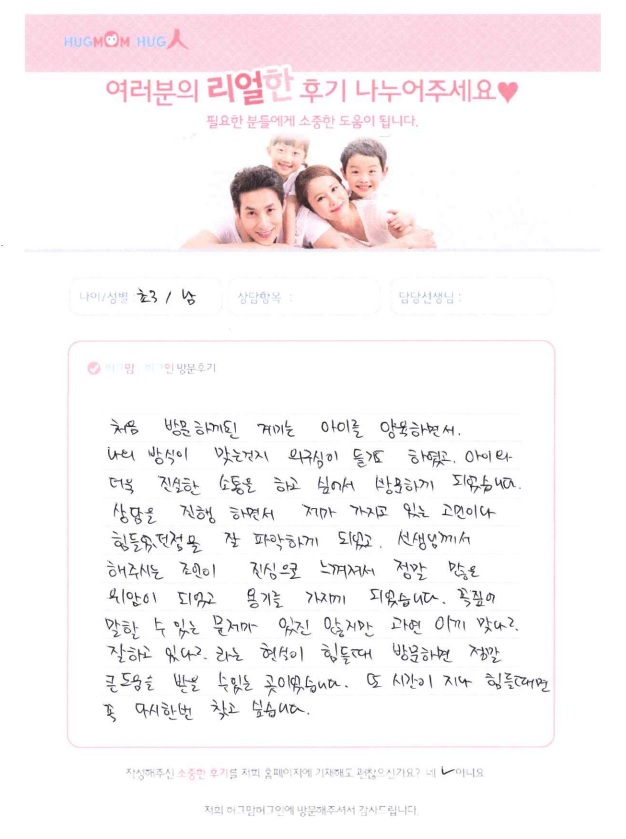 HUGMOM HUG人
여러분의 리얼한 후기 나누어주세요♥
필요한 분들에게 소중한 도움이 됩니다.
나이/성별 : 초3 / 남 상담항목 : 담당선생님 :
허그맘 허그인 방문후기
처음 방문하게된 계기는 아이를 양육하면서.
나의 방식이 맞는건지 의구심이 들기도 하였고. 아이와
더욱 진실한 소통을 하고 싶어서 방문하게 되었습니다.
상담을 진행 하면서 제가 가지고 있는 고민이나
힘들었던점을 잘 파악하게 되었고. 선생님께서
해주시는 조언이 진심으로 느껴져서 정말 많은
위안이 되었고 용기를 가지게 되었습니다. 꼭집어
말할 수 있는 문제가 있진 않지만 과연 이게 맞나?.
잘하고 있나?. 라는 현실이 힘들때 방문하면 정말
큰도움을 받을 수있는 곳이었습니다. 또 시간이 지나 힘들때면
꼭 다시한번 찾고 싶습니다.
작성해주신 소중한 후기를 저희 홈페이지에 기재해도 괜찮으신가요? 네 ✓ 아니요
저희 허그맘허그인에 방문해주셔서 감사드립니다.